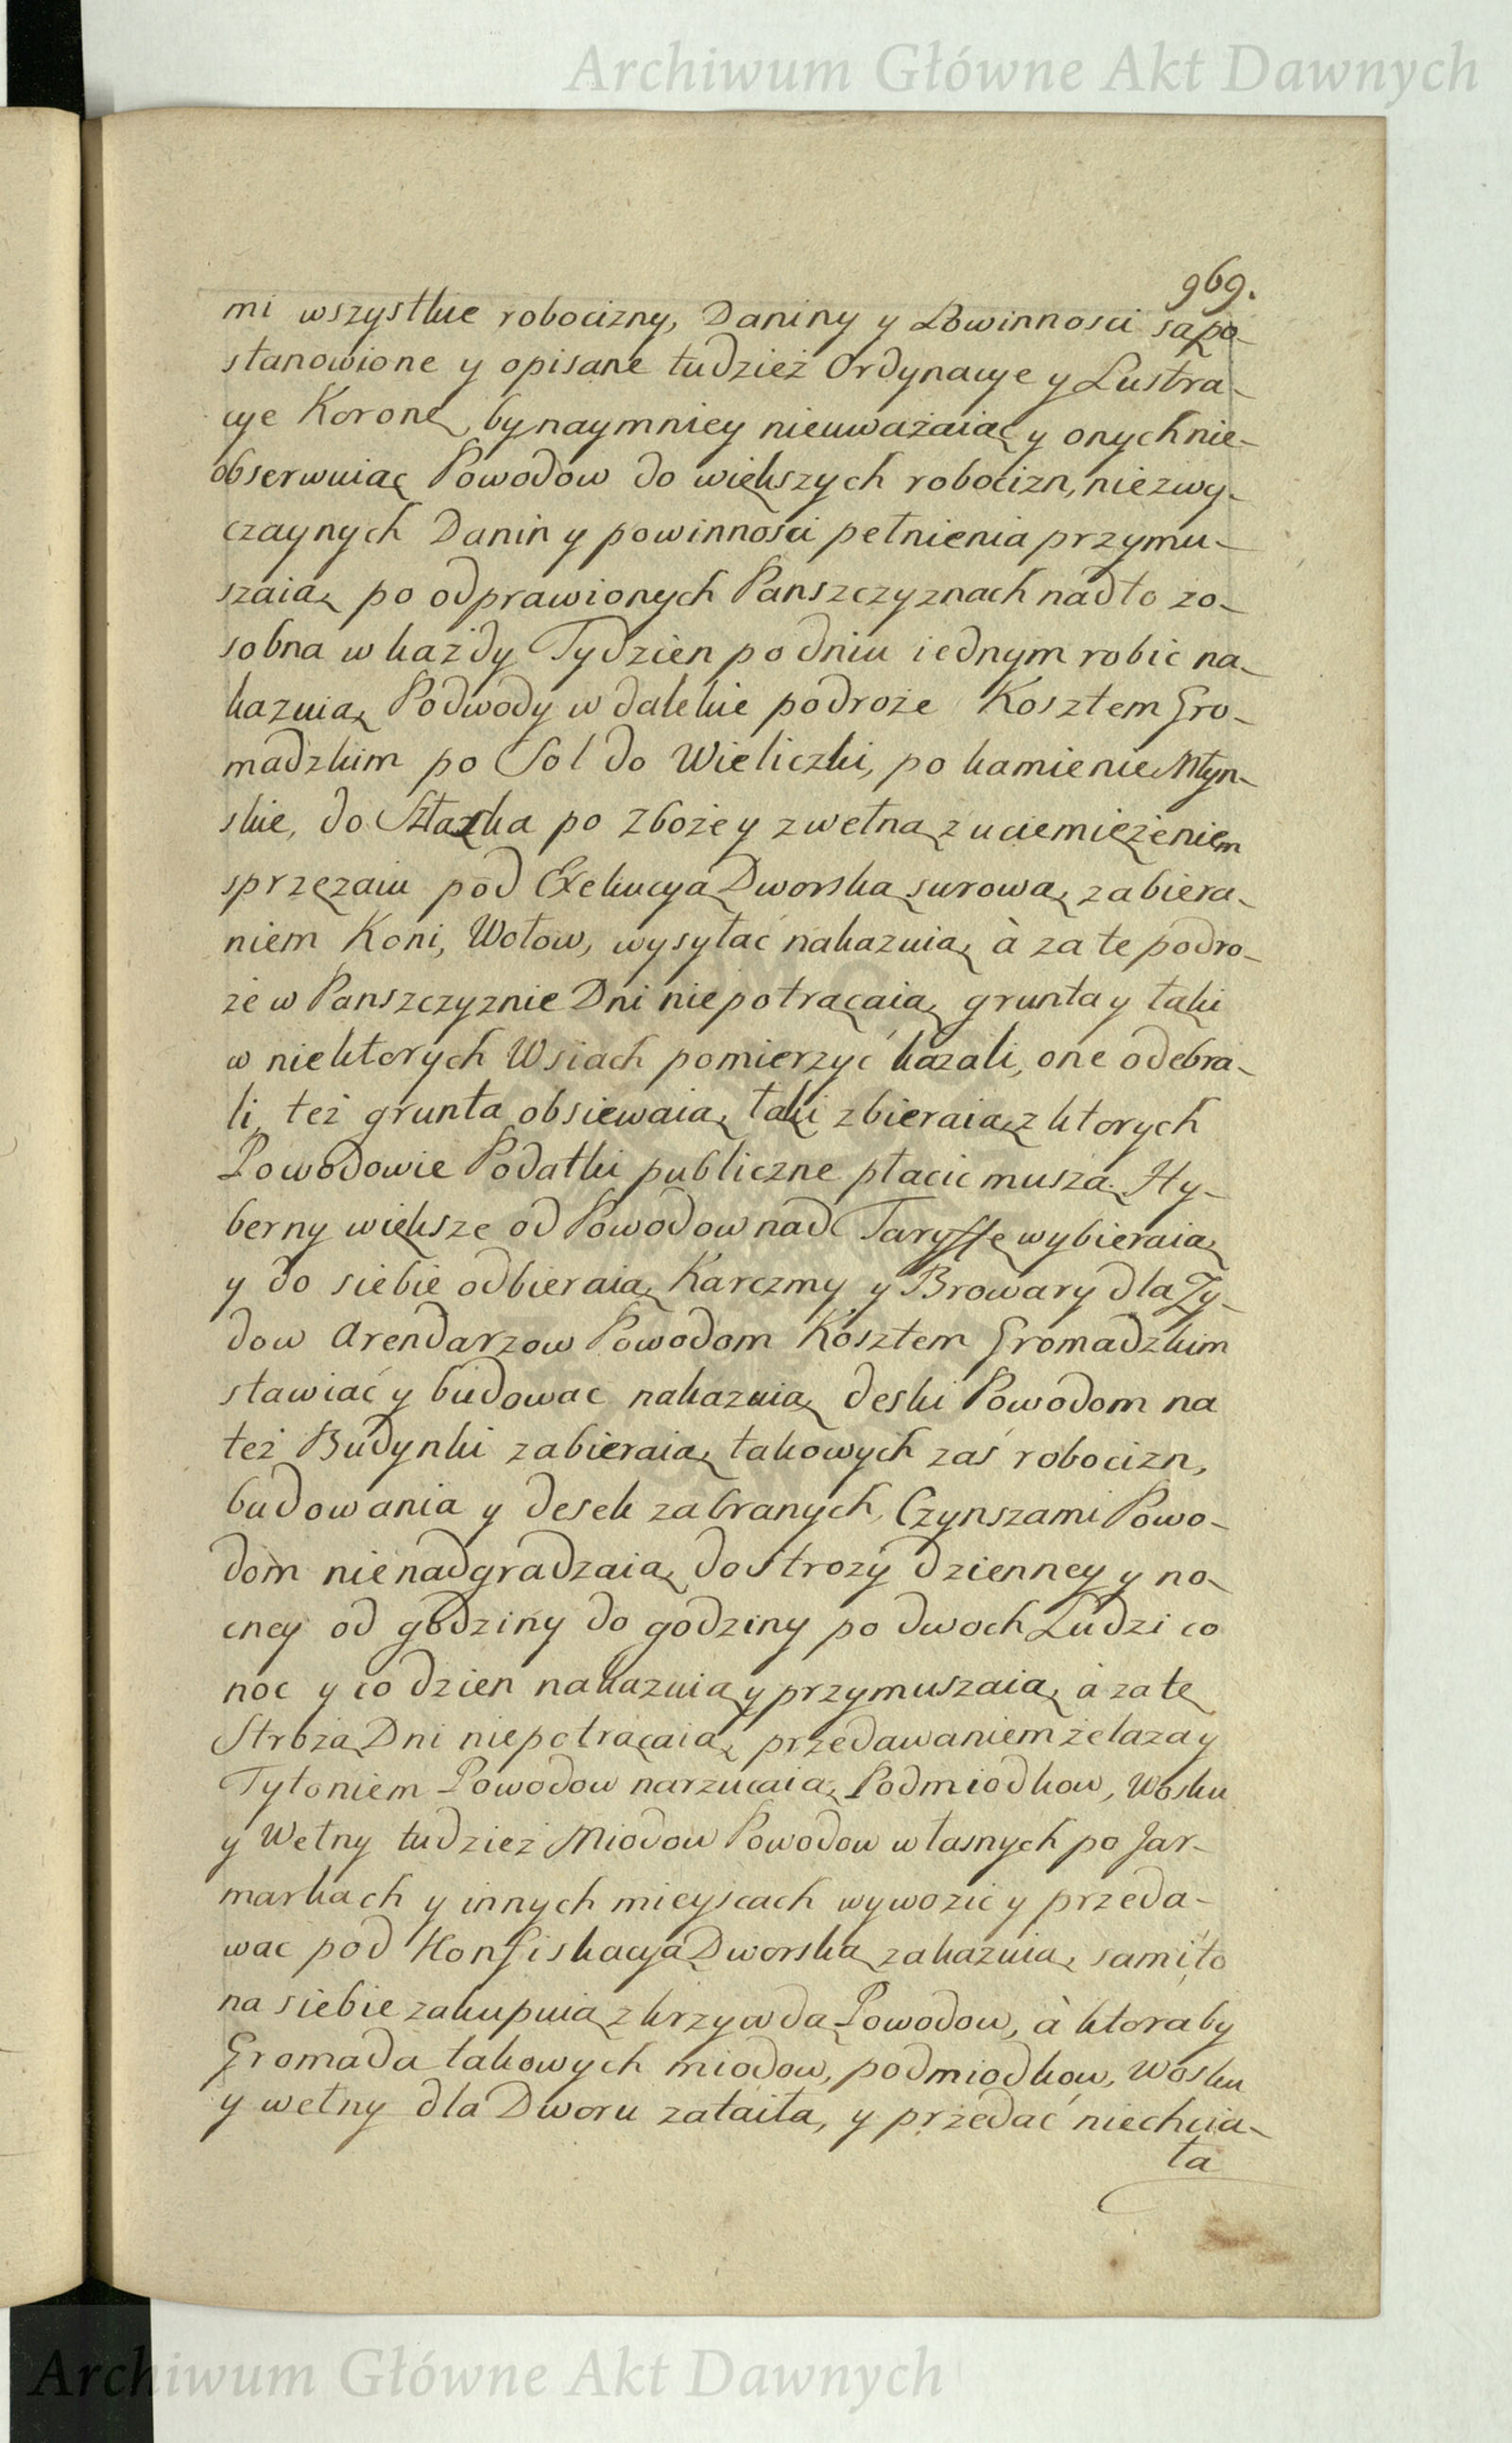 Archiwum Główne Akt Dawnych
969.
mi wszystkie robocizny, Daniny y Powinnosci są po-
stanowione y opisane tudzież Ordynacye y Lustra-
cye Koronę bynaymniey nieuważaiąc y onych nie-
obserwuiąc Powodow do większych robocizn, niezwy-
czaynych Danin y powinnosci pełnienia przymu-
szaią, po odprawionych Panszczyznach nadto zo-
sobna w każdy Tydzien po dniu iednym robic na-
kazuią, Podwody w dalekie podroże Kosztem Gro-
madzkim po Sol do Wieliczki, po kamienie Młyn-
skie, do Szląska po Zboże y z wełną z uciemiężeniem
sprzężaiu pod Exekucyą Dworską surową, zabiera-
niem Koni, Wołow, wysyłać nakazuią, à za te podro-
że w Panszczyznie Dni niepotrącaią, grunta y łąki
w niektorych Wsiach pomierzyć kazali, one odebra-
li, też grunta obsiewaią, łąki zbieraią, z ktorych
Powodowie Podatki publiczne płacic muszą. Hy-
berny większe od Powodow nad Taryffę wybieraią
y do siebie odbieraią, Karczmy y Browary dla Ży-
dow Arendarzow Powodom Kosztem Gromadzkim
stawiać y budowac nakazuią, deski Powodom na
też Budynki zabieraią, takowych zaś robocizn,
budowania y desek zabranych, Czynszami Powo-
dom nienadgradzaią, do Stroży dzienney y no-
cney od godziny do godziny po dwoch Ludzi co
noc y co dzien nakazuią y przymuszaią, à za tę
Strożą Dni niepotrącaią, przedawaniem żelaza y
Tytoniem Powodow narzucaią, Podmiodkow, Wosku
y Wełny tudzież Miodow Powodow własnych po Jar-
markach y innych mieyscach wywozic y przeda-
wac pod Konfiskacyą Dworską zakazuią, sami to
na siebie zakupuią z krzywdą Powodow, à ktoraby
Gromada takowych miodow, podmiodkow, Wosku
y wełny dla Dworu zataiła, y przedać niechcia-
ła
Archiwum Główne Akt Dawnych